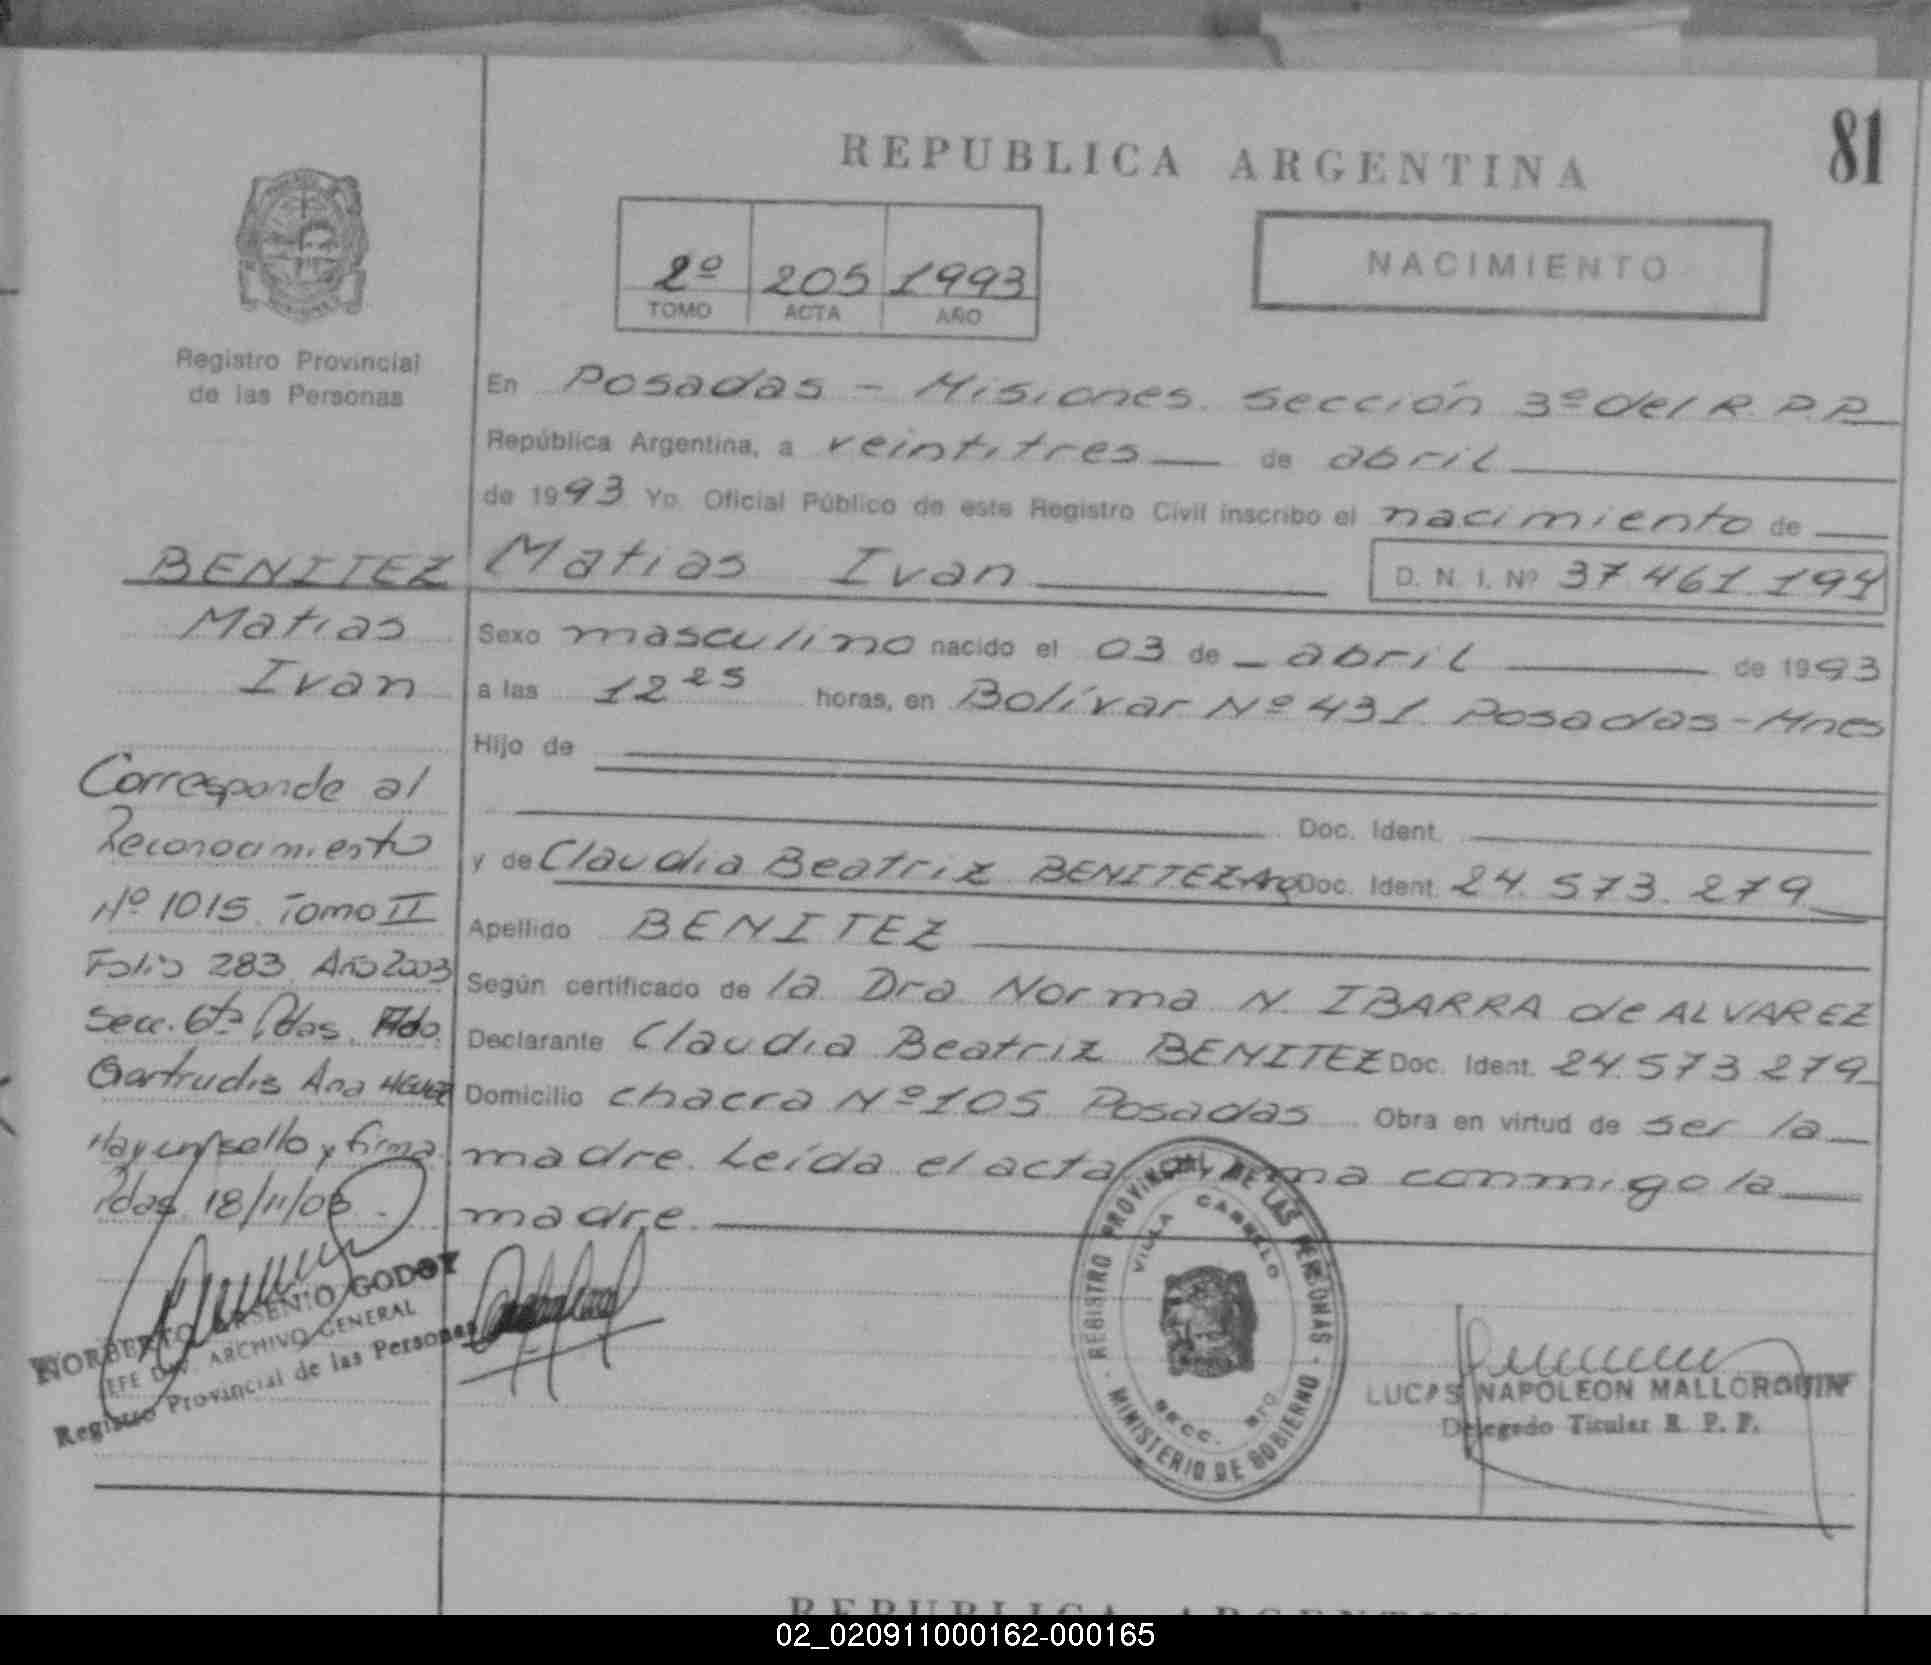 81
REPUBLICA ARGENTINA
2º 205 1993
TOMO ACTA AÑO
NACIMIENTO
Registro Provincial
de las Personas
En Posadas - Misiones. Sección 3º del R.P.P.
República Argentina, a veintitres de abril
de 1993 Yo. Oficial Público de este Registro Civil inscribo el nacimiento de
Matias Ivan D. N. I. Nº 37.461.194
Sexo masculino nacido el 03 de abril de 1993
a las 12 25 horas, en Bolívar Nº 431. Posadas-Mnes
Hijo de
Doc. Ident.
y de Claudia Beatriz BENITEZ Arg Doc. Ident. 24.573.279
Apellido BENITEZ
Según certificado de la Dra Norma N. IBARRA de ALVAREZ
Declarante Claudia Beatriz BENITEZ Doc. Ident. 24.573.279
Domicilio chacra Nº 105 Posadas Obra en virtud de ser la
madre. Leída el acta, firma conmigo la
madre.
BENITEZ
Matias
Ivan
Corresponde al
Reconocimiento
Nº 1015. Tomo II
Folio 283. Año 2003
Secc. 6ta Pdas. Fdo.
Gertrudis Ana
Hay un sello y firma
Pdas. 18/11/03.
NORBERTO ARSENIO GODOY
JEFE DIV. ARCHIVO GENERAL
Registro Provincial de las Personas
REGISTRO PROVINCIAL DE LAS PERSONAS
VILLA CABELLO
SECC.
MINISTERIO DE GOBIERNO
LUCAS NAPOLEON MALLORQUIN
Delegado Titular R. P. P.
REPUBLICA ARGENTINA
02_020911000162-000165